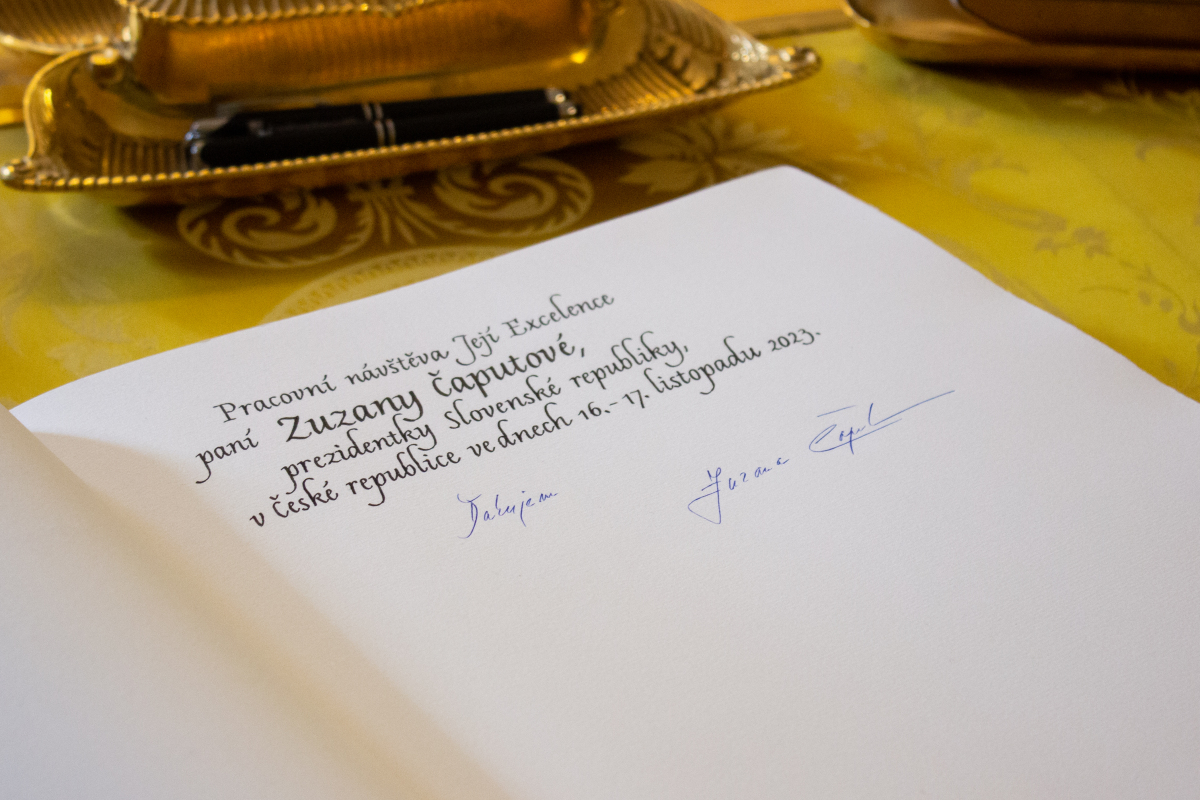 Pracovní návštěva Její Excelence
paní Zuzany Čaputové,
prezidentky Slovenské republiky,
v České republice ve dnech 16.-17. listopadu 2023.
Ďakujem
Zuzana Čaput